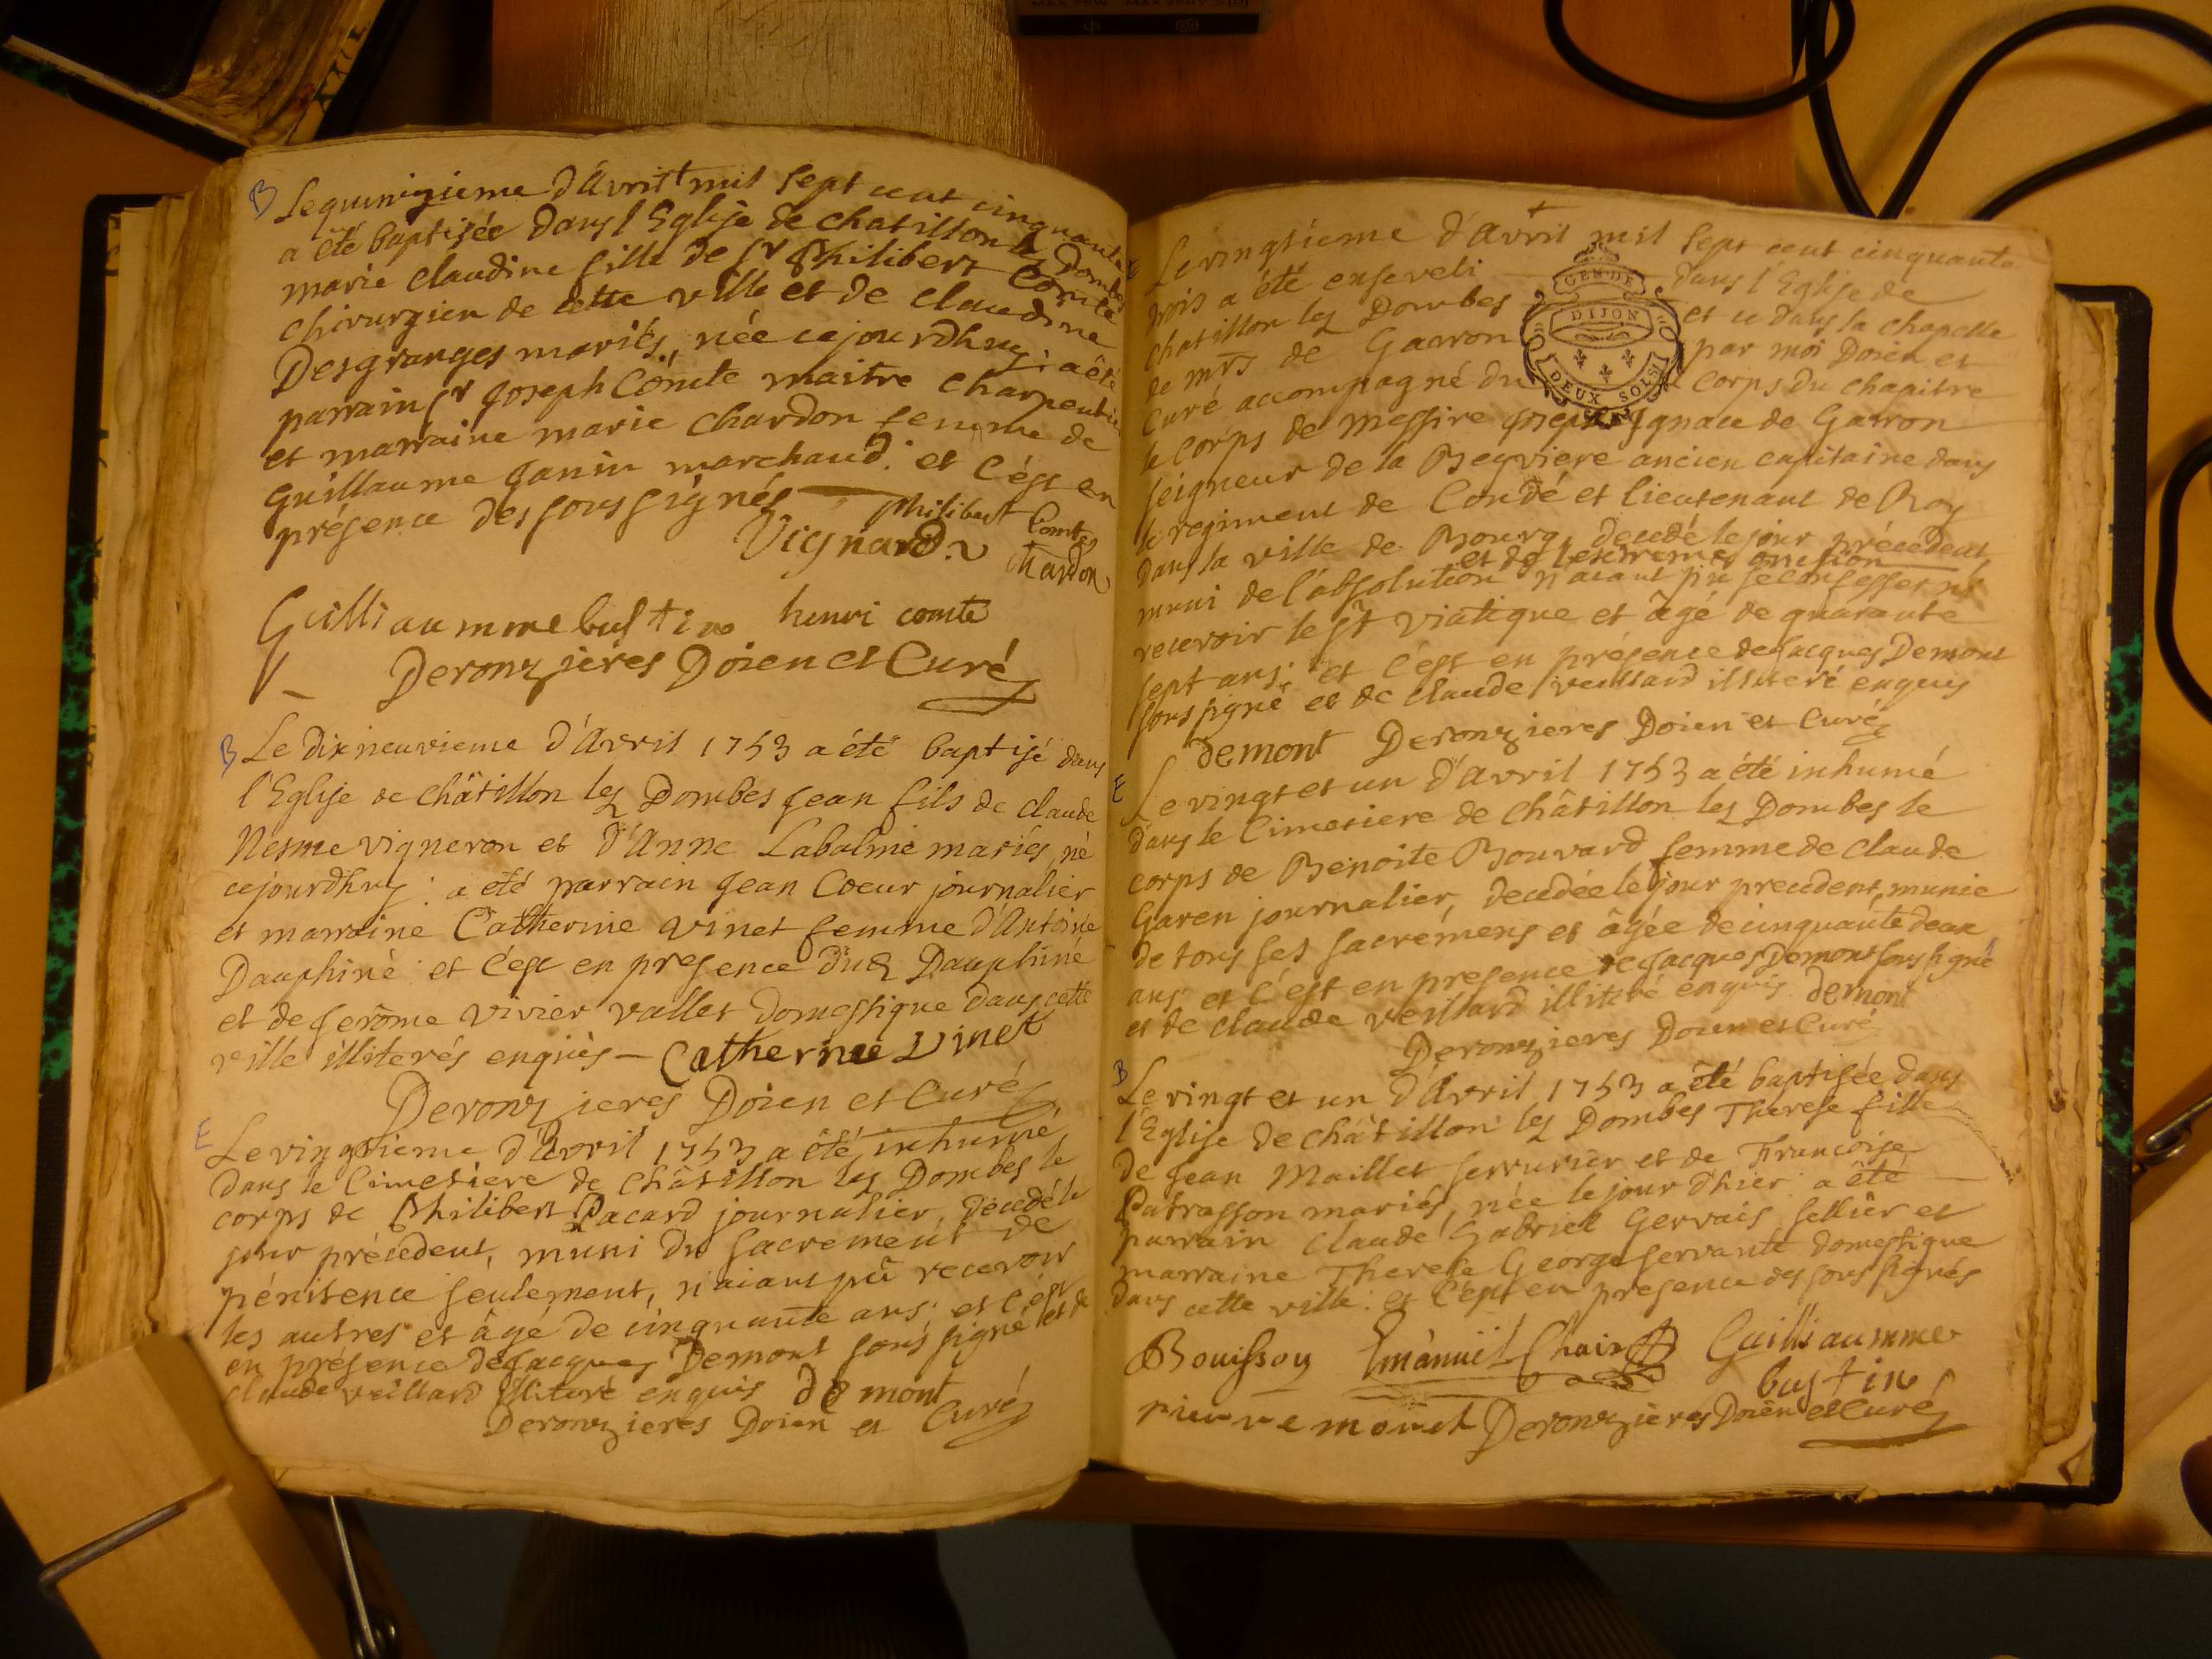 B Le quinzieme d'Avril mil sept cent cinquante
a été baptisée dans l'Eglise de chatillon les Dombes
marie claudine fille de Sr Philibert Comte
chirurgien de cette ville et de claudine
Desgranges mariés, née cejourdhuy: a été
parrain Sr Joseph Comte maitre charpentier
et marraine marie Chardon femme de
Guillaume Janin marchand: et c'est en
présence des soussignés
philibert Comte
Vignard
Chardon
Guilliaumme bustin henri comte
Deronzieres Doien et Curé
B Le dixneuvieme d'Avril 1753 a été baptisé dans
l'Eglise de châtillon les Dombes Jean fils de claude
Nesme vigneron et d'Anne Labalme mariés, né
cejourdhuy: a été parrain Jean Coeur journalier
et marraine Catherine Vinet femme d'Antoine
Dauphiné: et c'est en presence dud Dauphiné
et de Jerôme Vivier vallet domestique dans cette
ville illiterés enquis — Catherine Vinet
Deronzieres Doien et Curé
E Le vingtieme d'Avril 1753 a été inhumé
dans le Cimetiere de châtillon les Dombes le
corps de Philibert Pacard journalier, décedé le
jour précedent, muni du sacrement de
pénitence seulement, n'aiant pû recevoir
les autres et âgé de cinquante ans: et c'est
en présence de Jacques Demont soussigné et de
claude veillard illiteré enquis demont
Deronzieres Doien et Curé
E Le vingtieme d'Avril mil sept cent cinquante
trois a été enseveli dans l'Eglise de
chatillon les Dombes et ce dans la chapelle
de mrs de Garron par moi Doien et
Curé accompagné du corps du chapitre
GEN. DE
DIJON
DEUX SOLS
le corps de Messire Joseph Ignace de Garron
seigneur de la Beyviere ancien capitaine dans
le regiment de Condé et lieutenant de Roy
dans la ville de Bourg, decedé le jour précedent,
et de l'extreme onction
muni de l'absolution n'aiant pû se confesser ni
recevoir le st Viatique et âgé de quarante
sept ans: et c'est en présence de Jacques Demont
soussigné et de claude veillard illiteré enquis
demont Deronzieres Doien et Curé
E Le vingt et un d'Avril 1753 a été inhumé
dans le Cimetiere de Châtillon les Dombes le
corps de Benoite Bouvard femme de claude
Garen journalier, decedée le jour precedent, munie
de tous ses sacremens et âgée de cinquante deux
ans: et c'est en presence de Jacques Demont soussigné
et de claude veillard illiteré enquis demont
Deronzieres Doien et Curé
B Le vingt et un d'Avril 1753 a été baptisée dans
l'Eglise de châtillon les Dombes Therese fille
de Jean Maillet serrurier et de Francoise
Patrasson mariés, née le jour d'hier: a été
parrain claude Gabriel Gervais sellier et
marraine Therese George servante domestique
dans cette ville: et c'est en presence des soussignés
Bouisson Emanuel Guilliaumme
bustin
pierre monet Deronzieres Doien et Curé